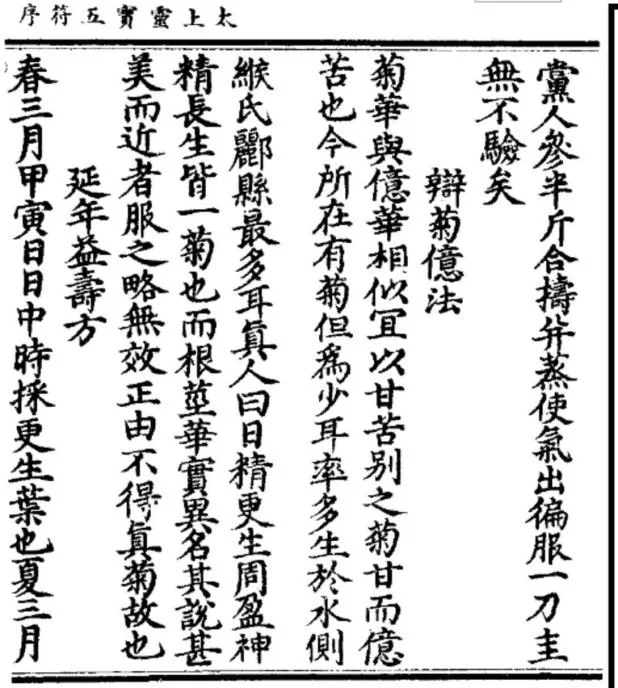 太上靈寶五符序
黨人參半斤合擣并蒸使氣出徧服一刀圭
無不驗矣
辯菊億法
菊華與億華相似冝以甘苦别之菊甘而億
苦也今所在有菊但爲少耳率多生於水側
緱氏酈縣最多耳眞人曰日精更生周盈神
精長生皆一菊也而根莖華實異名其說甚
美而近者服之略無效正由不得眞菊故也
延年益壽方
春三月甲寅日日中時採更生葉也夏三月